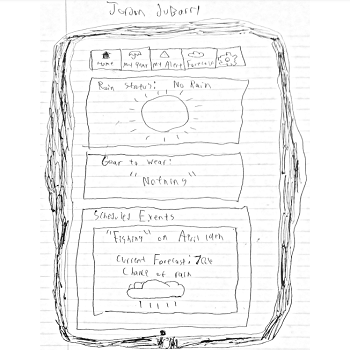 Jordan DuBarry
Home My Gear My Alert Forecast
Rain Status: No Rain
Gear to wear:
"Nothing"
Scheduled Events
"Fishing" on April 19th
Current Forecast: 70%
Chance of rain